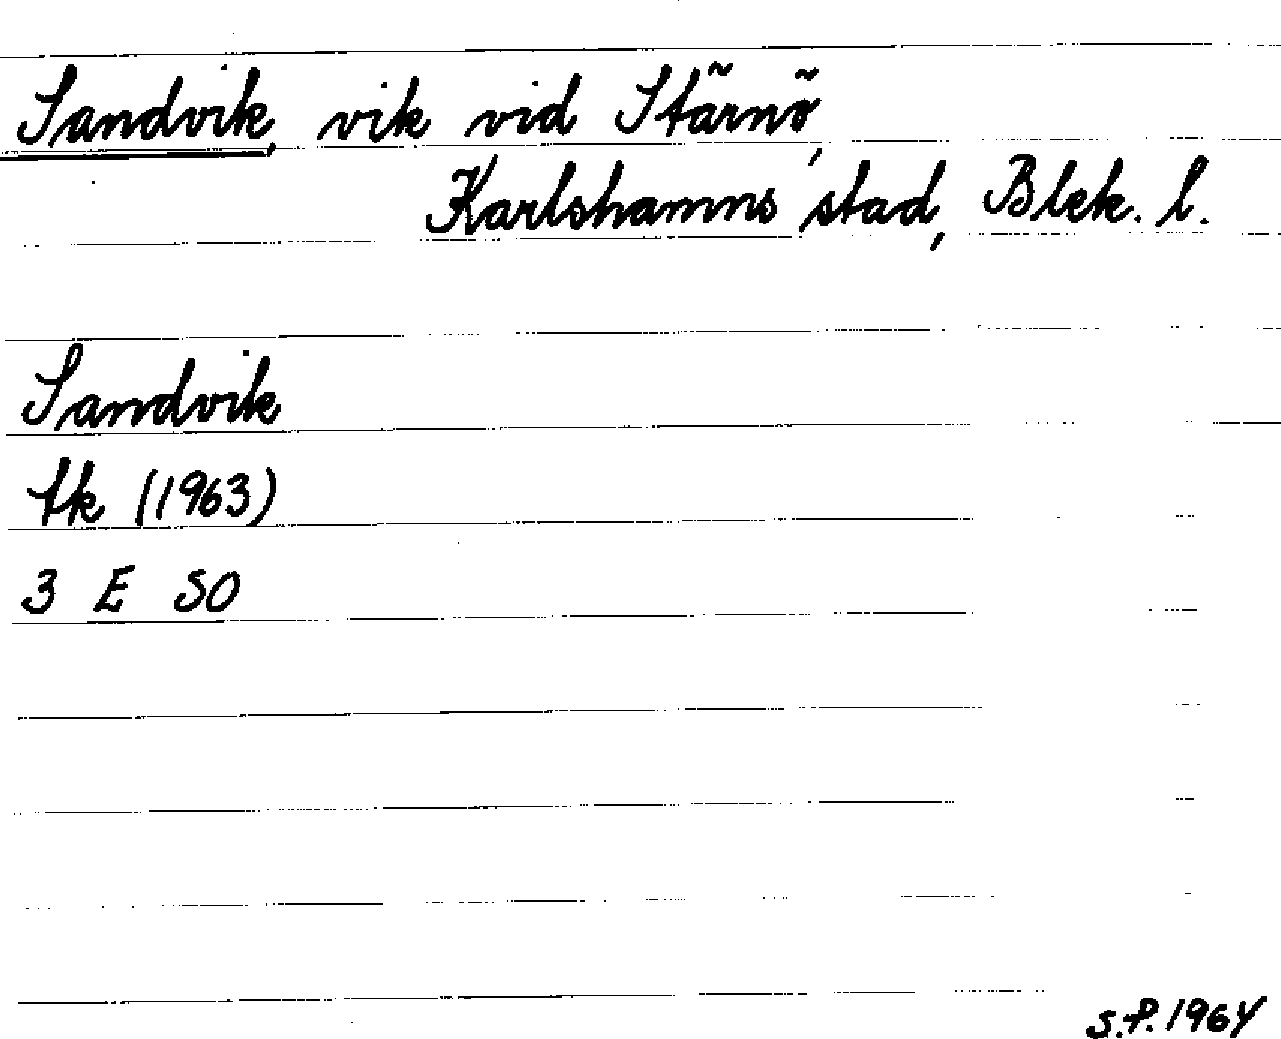 Sandvik, vik vid Stärnö,
Karlshamns stad, Blek. l.
Sandvik
tk (1963)
3 E SO
S.P. 1964